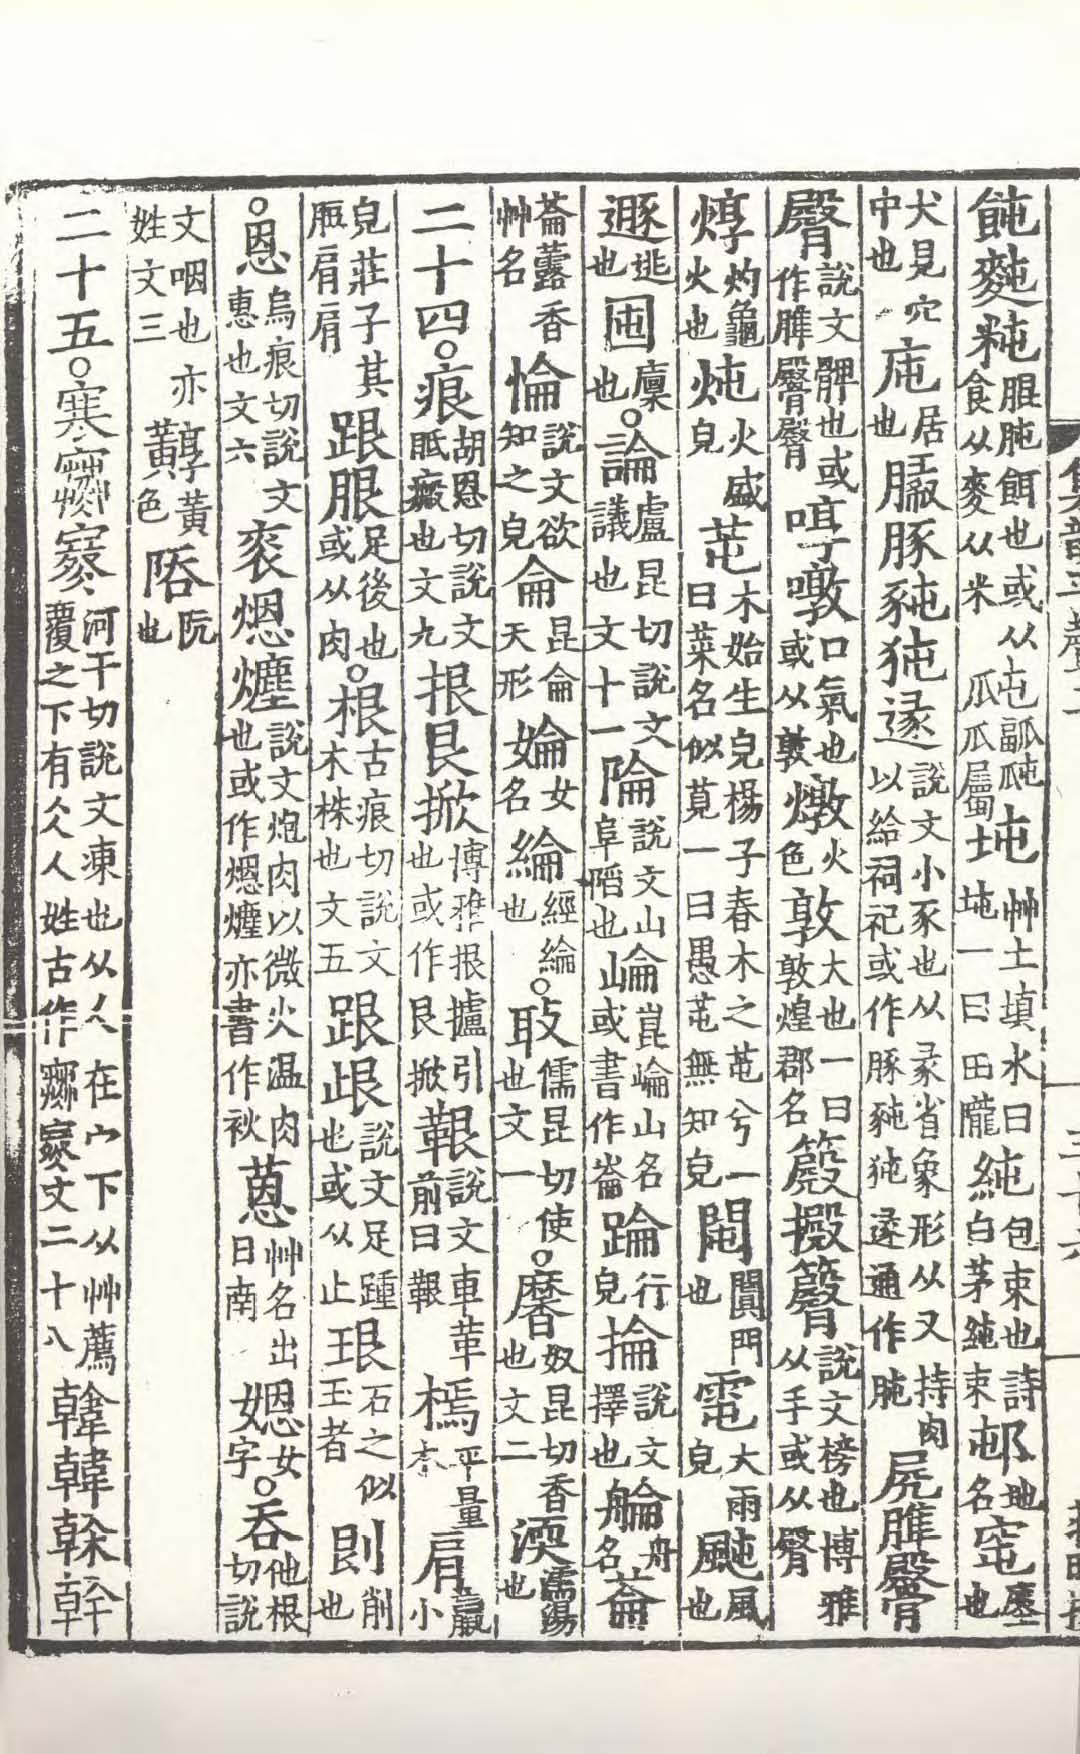 飩麰粋餛肫餌也或从屯食从麥从米㼌㼊瓜瓜屬坉艸土填水曰坉一曰田隴純包束也詩白茅純束邨地名窀壅也
犬見穴中也庉居也豚豘㹠遯說文小豕也从彖省象形从又持肉以給祠祀或作豚豘㹠遯通作肫𡱂脽臀
臀說文髀也或作脽臋臀啍噋口氣也或从敦燉火色敦大也一曰敦煌郡名簸㩔䈻說文榜也博雅从手或从臀
焞灼龜火也炖火盛皃芚木始生皃楊子春木之芚兮一曰菜名似莧一曰愚芚無知皃閽闠門也電大雨皃颮風也
遯逃也囤廩也○論盧昆切說文議也文十一陯說文山阜陷也崘崑崘山名或書作崙踚行皃掄說文擇也艑舟名菕
菕蘆香艸名惀說文欲知之皃侖昆侖天形婨女名綸經綸也○𢻃儒昆切使也文一○黁奴昆切香也文二渜濡湯也
二十四○痕胡恩切說文胝瘢也文九拫艮掀博雅拫攄引也或作艮掀報說文車革前曰報㯊平量木肩羸小
皃莊子其脰肩肩跟䏰足後也或从肉○根古痕切說文木株也文五跟䟘說文足踵也或从止珢石之似玉者剆削也
○恩烏痕切說文惠也文六衮煾爊說文炮肉以微火温肉也或作煾爊亦書作衮蒽艸名出日南㛙女字○吞他根切說
文咽也亦姓文三黗黃黃色䧇阮也
二十五○寒𡫳㝮河干切說文凍也从人在宀下从艸薦覆之下有仌仌人姓古作𡫳㝮文二十八韓韓榦幹
集韻平聲二
三十六